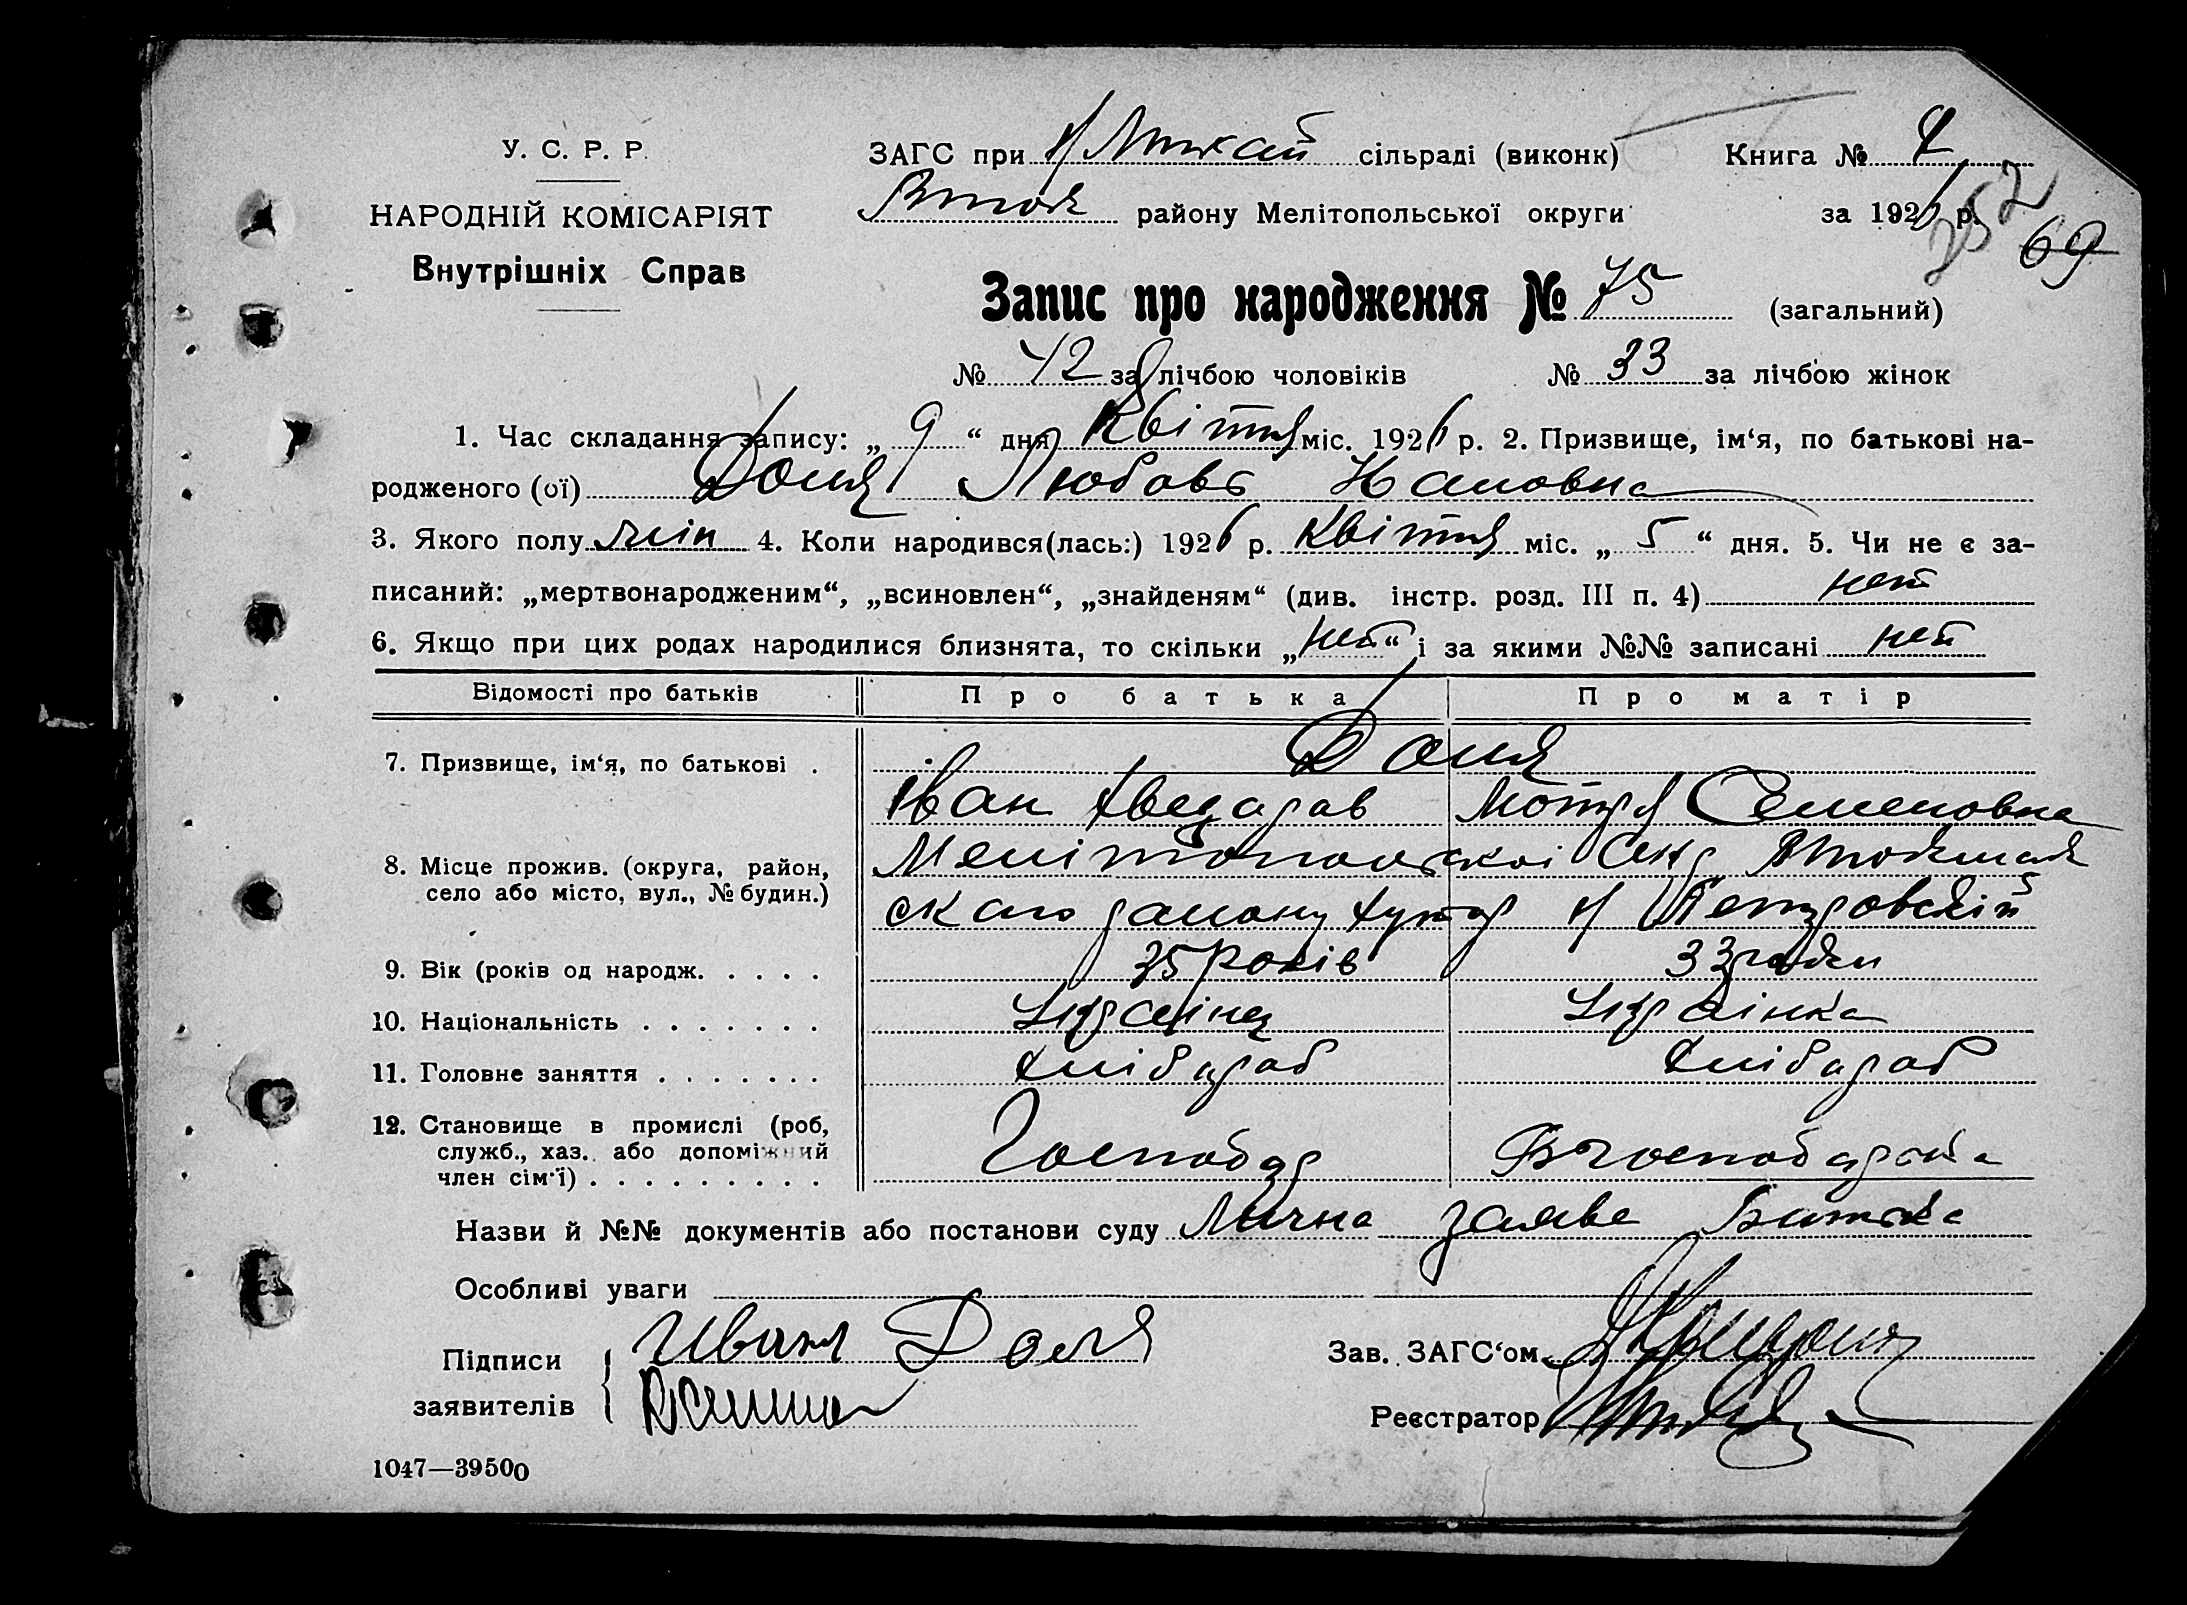 У. С. Р. Р.
НАРОДНІЙ КОМІСАРІЯТ
Внутрішніх Справ
ЗАГС при сільраді (виконк)
Книга №
Вток району Мелітопольської округи
за 1926 р.
252
69
Запис про народження № 75 (загальний)
№ 42 за лічбою чоловіків № 33 за лічбою жінок
1. Час складання запису: „ 9 “ дня Квітня міс. 1926 р. 2. Призвище, ім‘я, по батькові на-
родженого (ої) Доля Любовь
3. Якого полу жін 4. Коли народився(лась:) 1926 р. Квітня міс. „ 5 “ дня. 5. Чи не є за-
писаний: „мертвонародженим“, „всиновлен“, „знайденям“ (див. інстр. розд. III п. 4) нет
6. Якщо при цих родах народилися близнята, то скільки „ нет “ і за якими №№ записані нет
Відомості про батьків
Про батька
Про матір
7. Призвище, ім‘я, по батькові .
Доля
Іван
Мотря Семеновна
8. Місце прожив. (округа, район,
село або місто, вул., № будин.)
Мелітопольскоі
ского району хутор Петровскій
9. Вік (років од народж. . . . .
35 років
33 роки
10. Національність . . . . . . .
Украінец
Украінка
11. Головне заняття . . . . . . .
Хлібороб
Хлібороб
12. Становище в промислі (роб,
служб., хаз. або допоміжний
член сім‘ї) . . . . . . . . .
Господар
Назви й №№ документів або постанови суду Лична заява Батька
Особливі уваги
Підписи
заявителів
Иван Доля
Зав. ЗАГС‘ом
Реєстратор
1047—39500